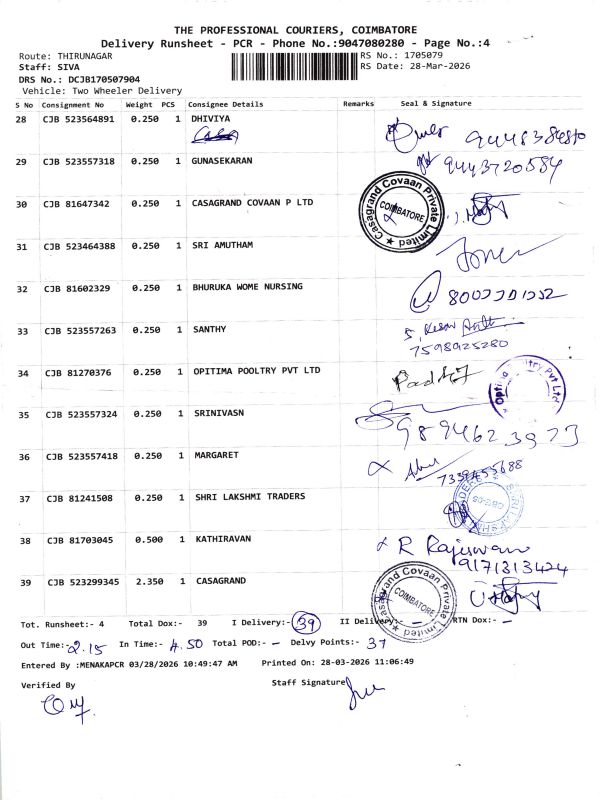 THE PROFESSIONAL COURIERS, COIMBATORE
Delivery Runsheet - PCR - Phone No.:9047080280 - Page No.:4
Route: THIRUNAGAR
Staff: SIVA
DRS No.: DCJB170507904
Vehicle: Two Wheeler Delivery
RS No.: 1705079
RS Date: 28-Mar-2026
S No Consignment No Weight PCS Consignee Details Remarks Seal & Signature
28 CJB 523564891 0.250 1 DHIVIYA
29 CJB 523557318 0.250 1 GUNASEKARAN 9443720584
30 CJB 81647342 0.250 1 CASAGRAND COVAAN P LTD
Casagrand Covaan Private Limited
COIMBATORE
31 CJB 523464388 0.250 1 SRI AMUTHAM
32 CJB 81602329 0.250 1 BHURUKA WOME NURSING
33 CJB 523557263 0.250 1 SANTHY
7598925280
34 CJB 81270376 0.250 1 OPITIMA POOLTRY PVT LTD
35 CJB 523557324 0.250 1 SRINIVASN
9894623973
36 CJB 523557418 0.250 1 MARGARET
7339455688
37 CJB 81241508 0.250 1 SHRI LAKSHMI TRADERS
38 CJB 81703045 0.500 1 KATHIRAVAN R Rajeswari
9171313424
39 CJB 523299345 2.350 1 CASAGRAND
Casagrand Covaan Private Limited
COIMBATORE
Tot. Runsheet:- 4 Total Dox:- 39 I Delivery:- 39 II Delivery:- - RTN Dox:- -
Out Time:- 2.15 In Time:- 4.50 Total POD:- - Delvy Points:- 37
Entered By :MENAKAPCR 03/28/2026 10:49:47 AM Printed On: 28-03-2026 11:06:49
Verified By
Staff Signature